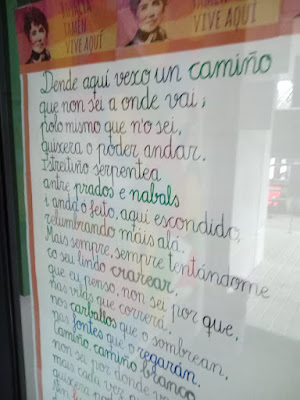 ROSALÍA
TAMÉN
VIVE AQUÍ
TAMÉN
VIVE AQUÍ
Dende aquí vexo un camiño
que non sei a onde vai;
polo mismo que n'o sei,
quixera o poder andar.
Istreitiño serpentea
antre prados e nabals
i anda o feito, aquí escondido,
relumbrando máis alá.
Mais sempre, sempre tentándome
co seu lindo crarear,
que eu penso, non sei por que,
nas vilas que correrá,
nos carballos que o sombrean,
nas fontes que o regarán.
Camiño, camiño branco
non sei por donde va
mais cada vez
quixera po